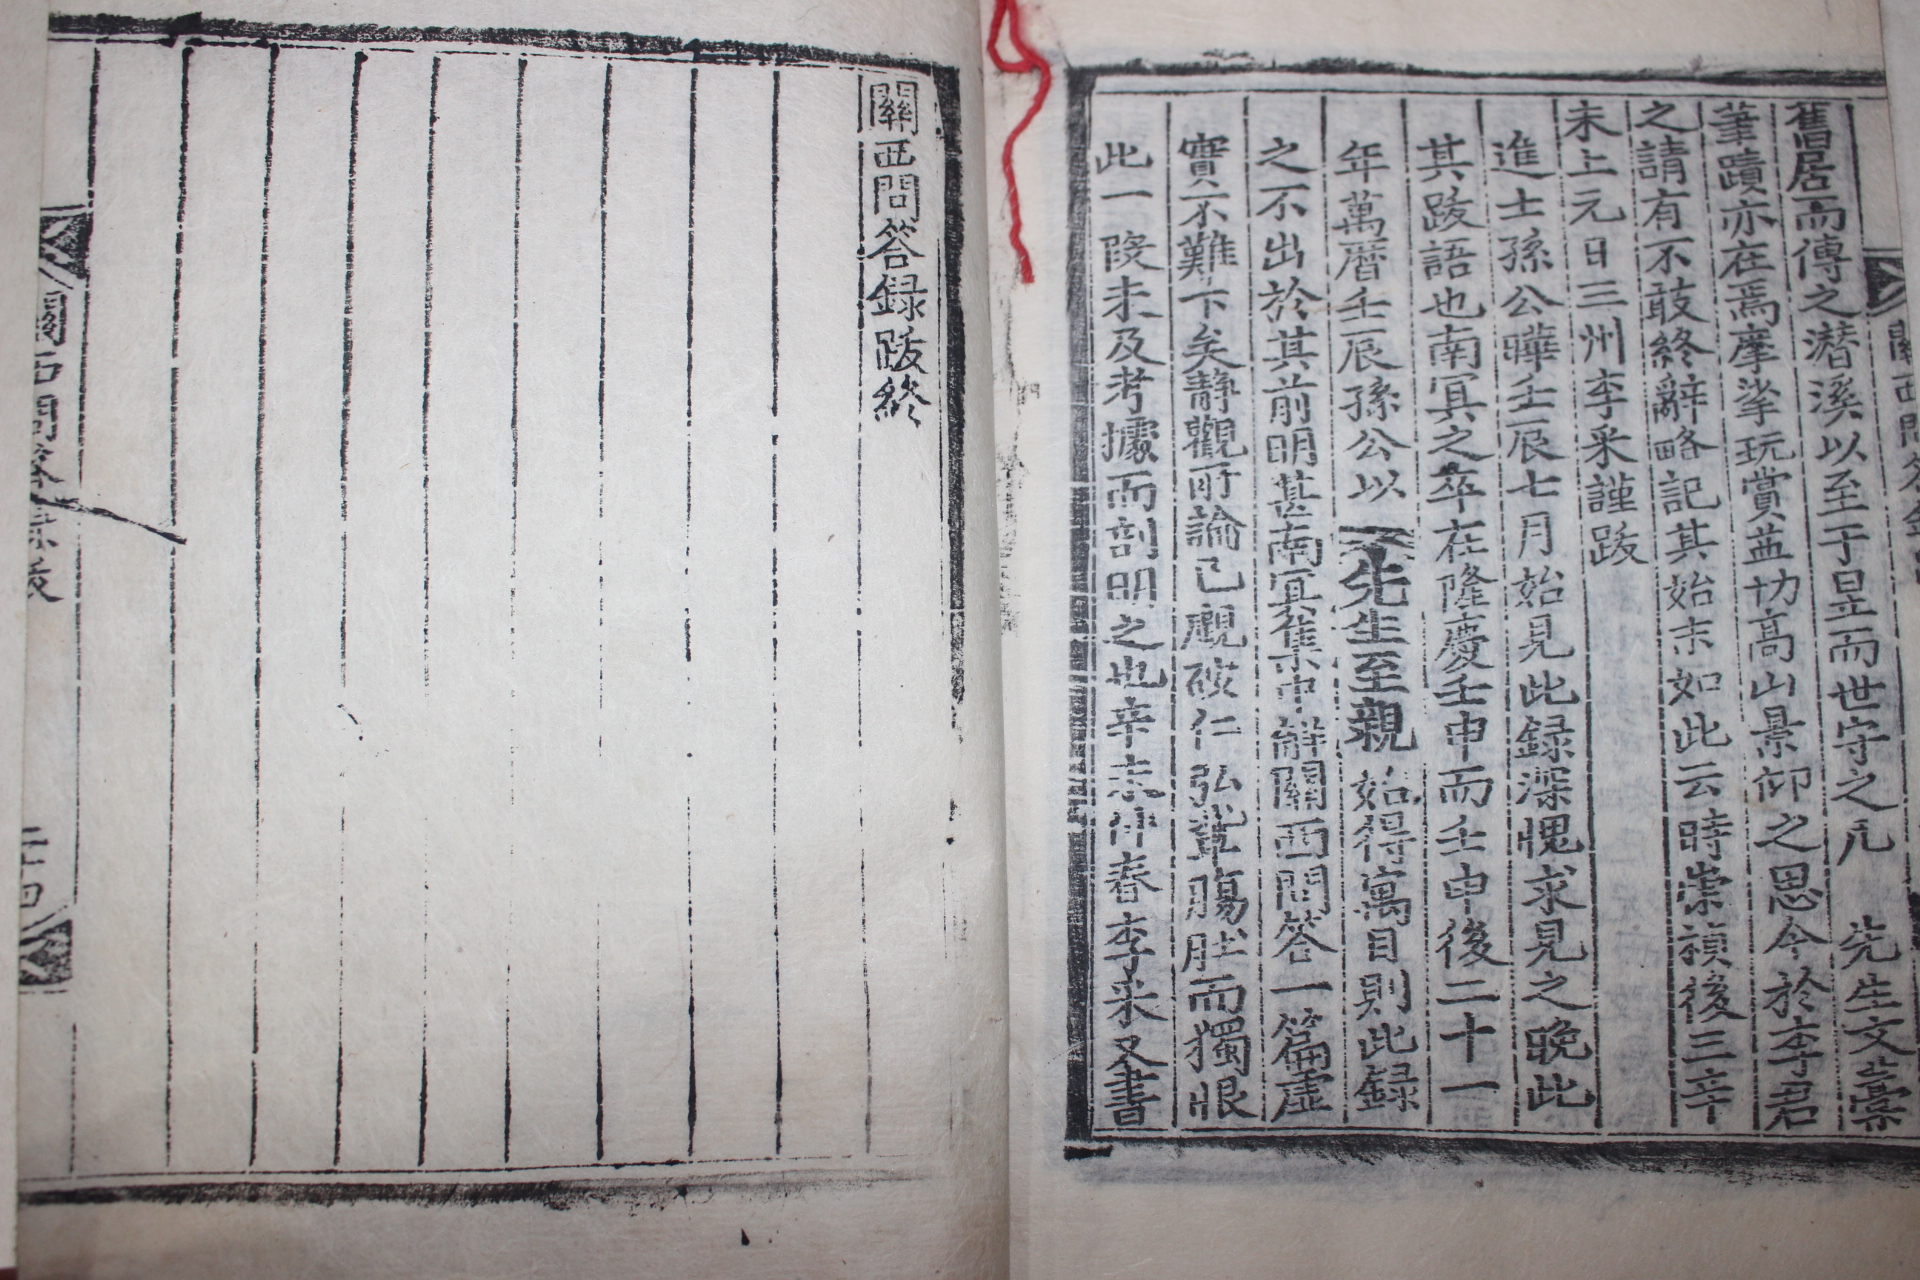 舊居而傳之潛溪以至于昰而世守之凡　先生文藁
筆蹟亦在焉摩挲玩賞益切高山景仰之思今於李君
之請有不敢終辭略記其始末如此云時崇禎後三辛
未上元日三州李采謹跋
進士孫公曄壬辰七月始見此録深愧求見之晩此
其跋語也南冥之卒在隆慶壬申而壬申後二十一
年萬曆壬辰孫公以先生至親始得寓目則此録
之不出於其前明甚南冥集中辨關西問答一篇虛
實不難下矣靜觀所論已覷破仁弘輩膓肚而獨恨
此一段未及考據而剖明之也辛未仲春李采又書
關西問答録跋終
關西問答録跋
二十四